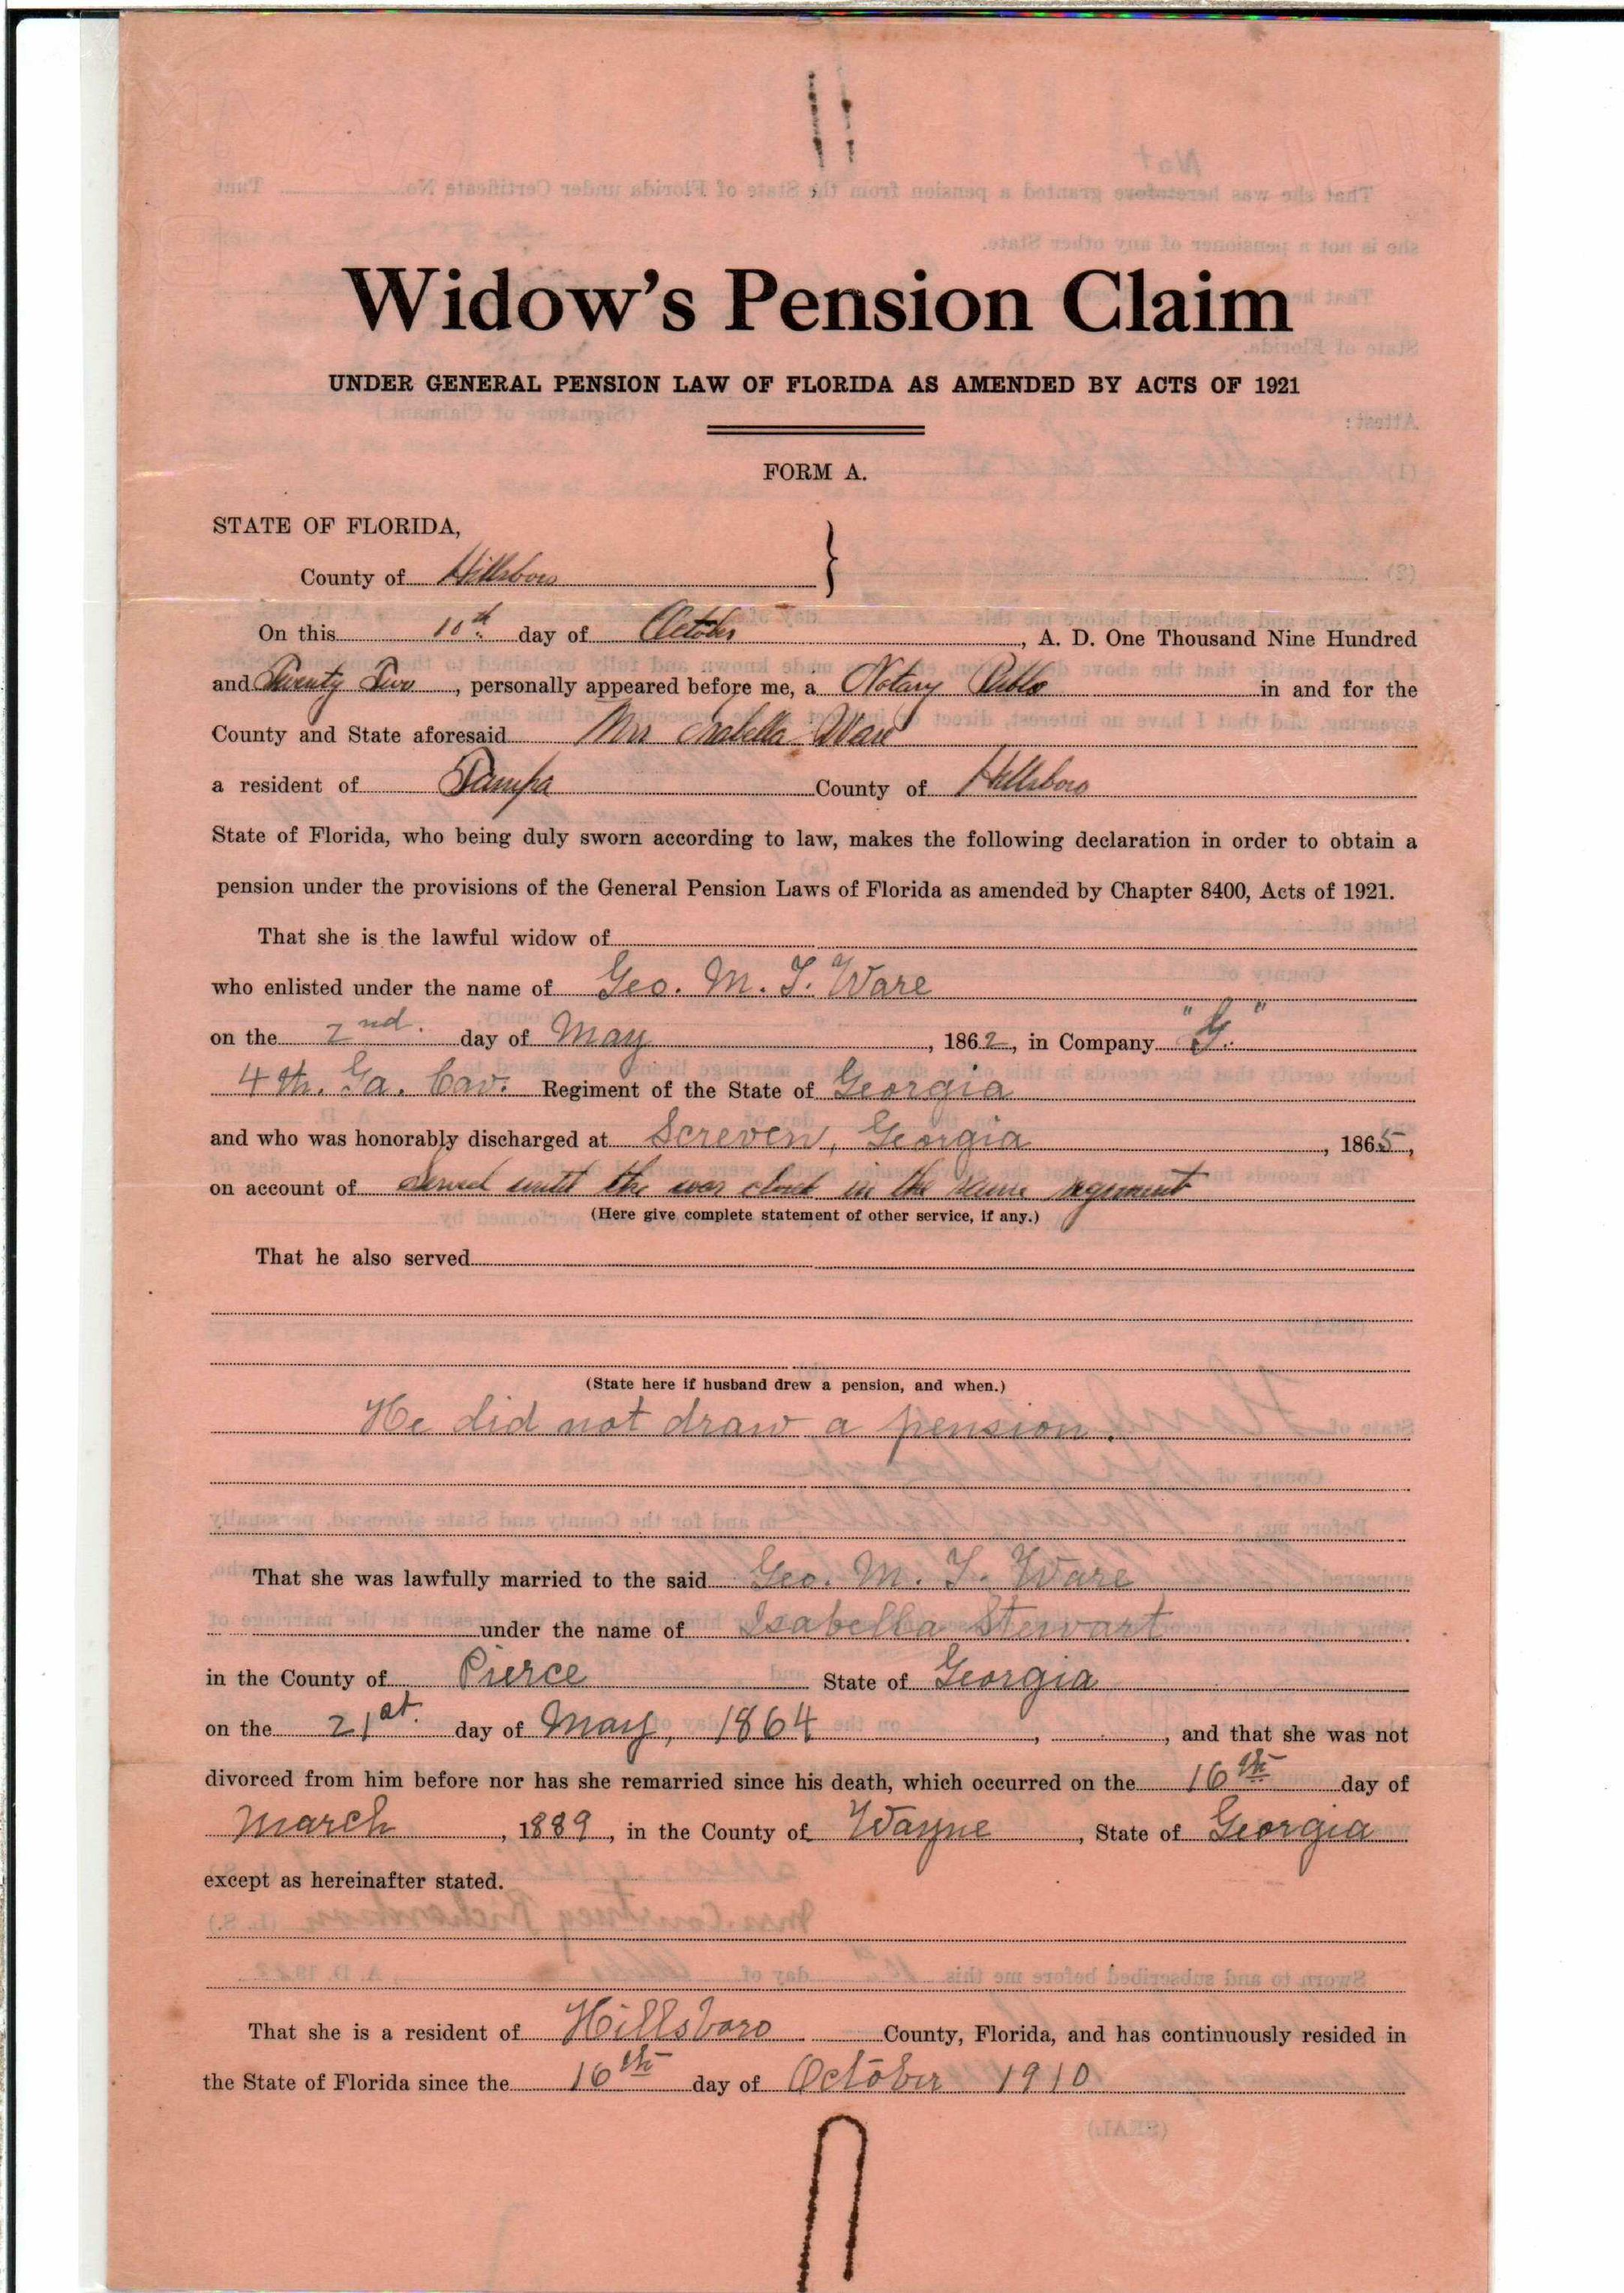 Widow's Pension Claim
UNDER GENERAL PENSION LAW OF FLORIDA AS AMENDED BY ACTS OF 1921
FORM A.
STATE OF FLORIDA,
County of Hillsboro
On this 10th. day of October, A. D. One Thousand Nine Hundred
and Twenty Two, personally appeared before me, a Notary Public in and for the
County and State aforesaid Mrs Ware
a resident of Tampa County of Hillsboro
State of Florida, who being duly sworn according to law, makes the following declaration in order to obtain a
pension under the provisions of the General Pension Laws of Florida as amended by Chapter 8400, Acts of 1921.
That she is the lawful widow of
who enlisted under the name of Geo. M. T. Ware
on the 2nd. day of May, 1862, in Company "G."
4th. Ga. Cav. Regiment of the State of Georgia
and who was honorably discharged at Screven, Georgia, 1865,
on account of served until the war closed in the same regiment
(Here give complete statement of other service, if any.)
That he also served
(State here if husband drew a pension, and when.)
He did not draw a pension.
That she was lawfully married to the said Geo. M. T. Ware
under the name of Isabella Stewart
in the County of Pierce State of Georgia
on the 21st. day of May, 1864, , and that she was not
divorced from him before nor has she remarried since his death, which occurred on the 16th day of
March, 1889, in the County of Wayne, State of Georgia
except as hereinafter stated.
That she is a resident of Hillsboro County, Florida, and has continuously resided in
the State of Florida since the 16th day of October 1910